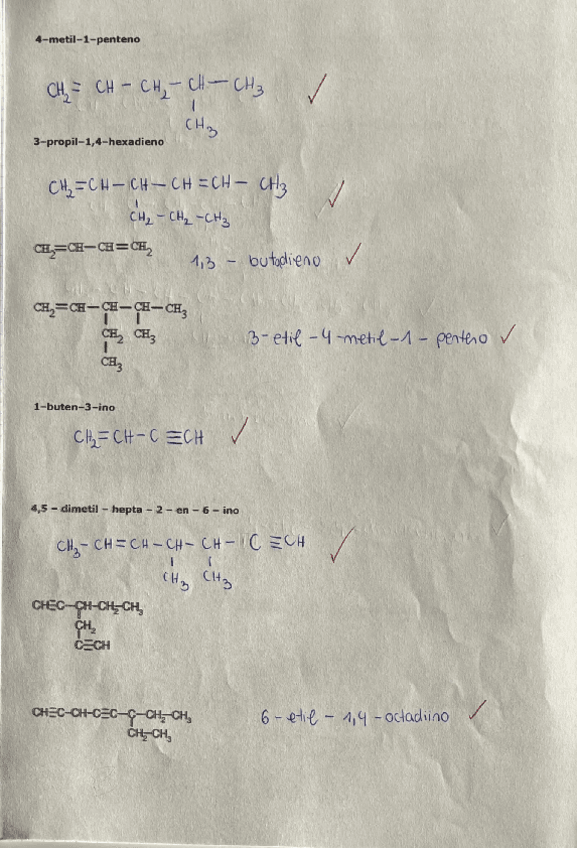 4-metil-1-penteno
CH₂= CH - CH₂ - CH - CH₃
CH₃
3-propil-1,4-hexadieno
CH₂=CH-CH-CH=CH-CH₃
CH₂-CH₂-CH₃
CH₂=CH-CH=CH₂
1,3 - butadieno
CH₂=CH-CH-CH-CH₃
CH₂ CH₃
3-etil-4-metil-1-penteno
CH₃
1-buten-3-ino
CH₂=CH-C≡CH
4,5 - dimetil - hepta - 2 - en - 6 - ino
CH₃-CH=CH-CH-CH-C≡CH
CH₃ CH₃
CH≡C-CH-CH₂-CH₃
CH₂
C≡CH
CH≡C-CH-C≡C-C-CH₂-CH₃
6-etil-1,4-octadiino
CH₂-CH₃